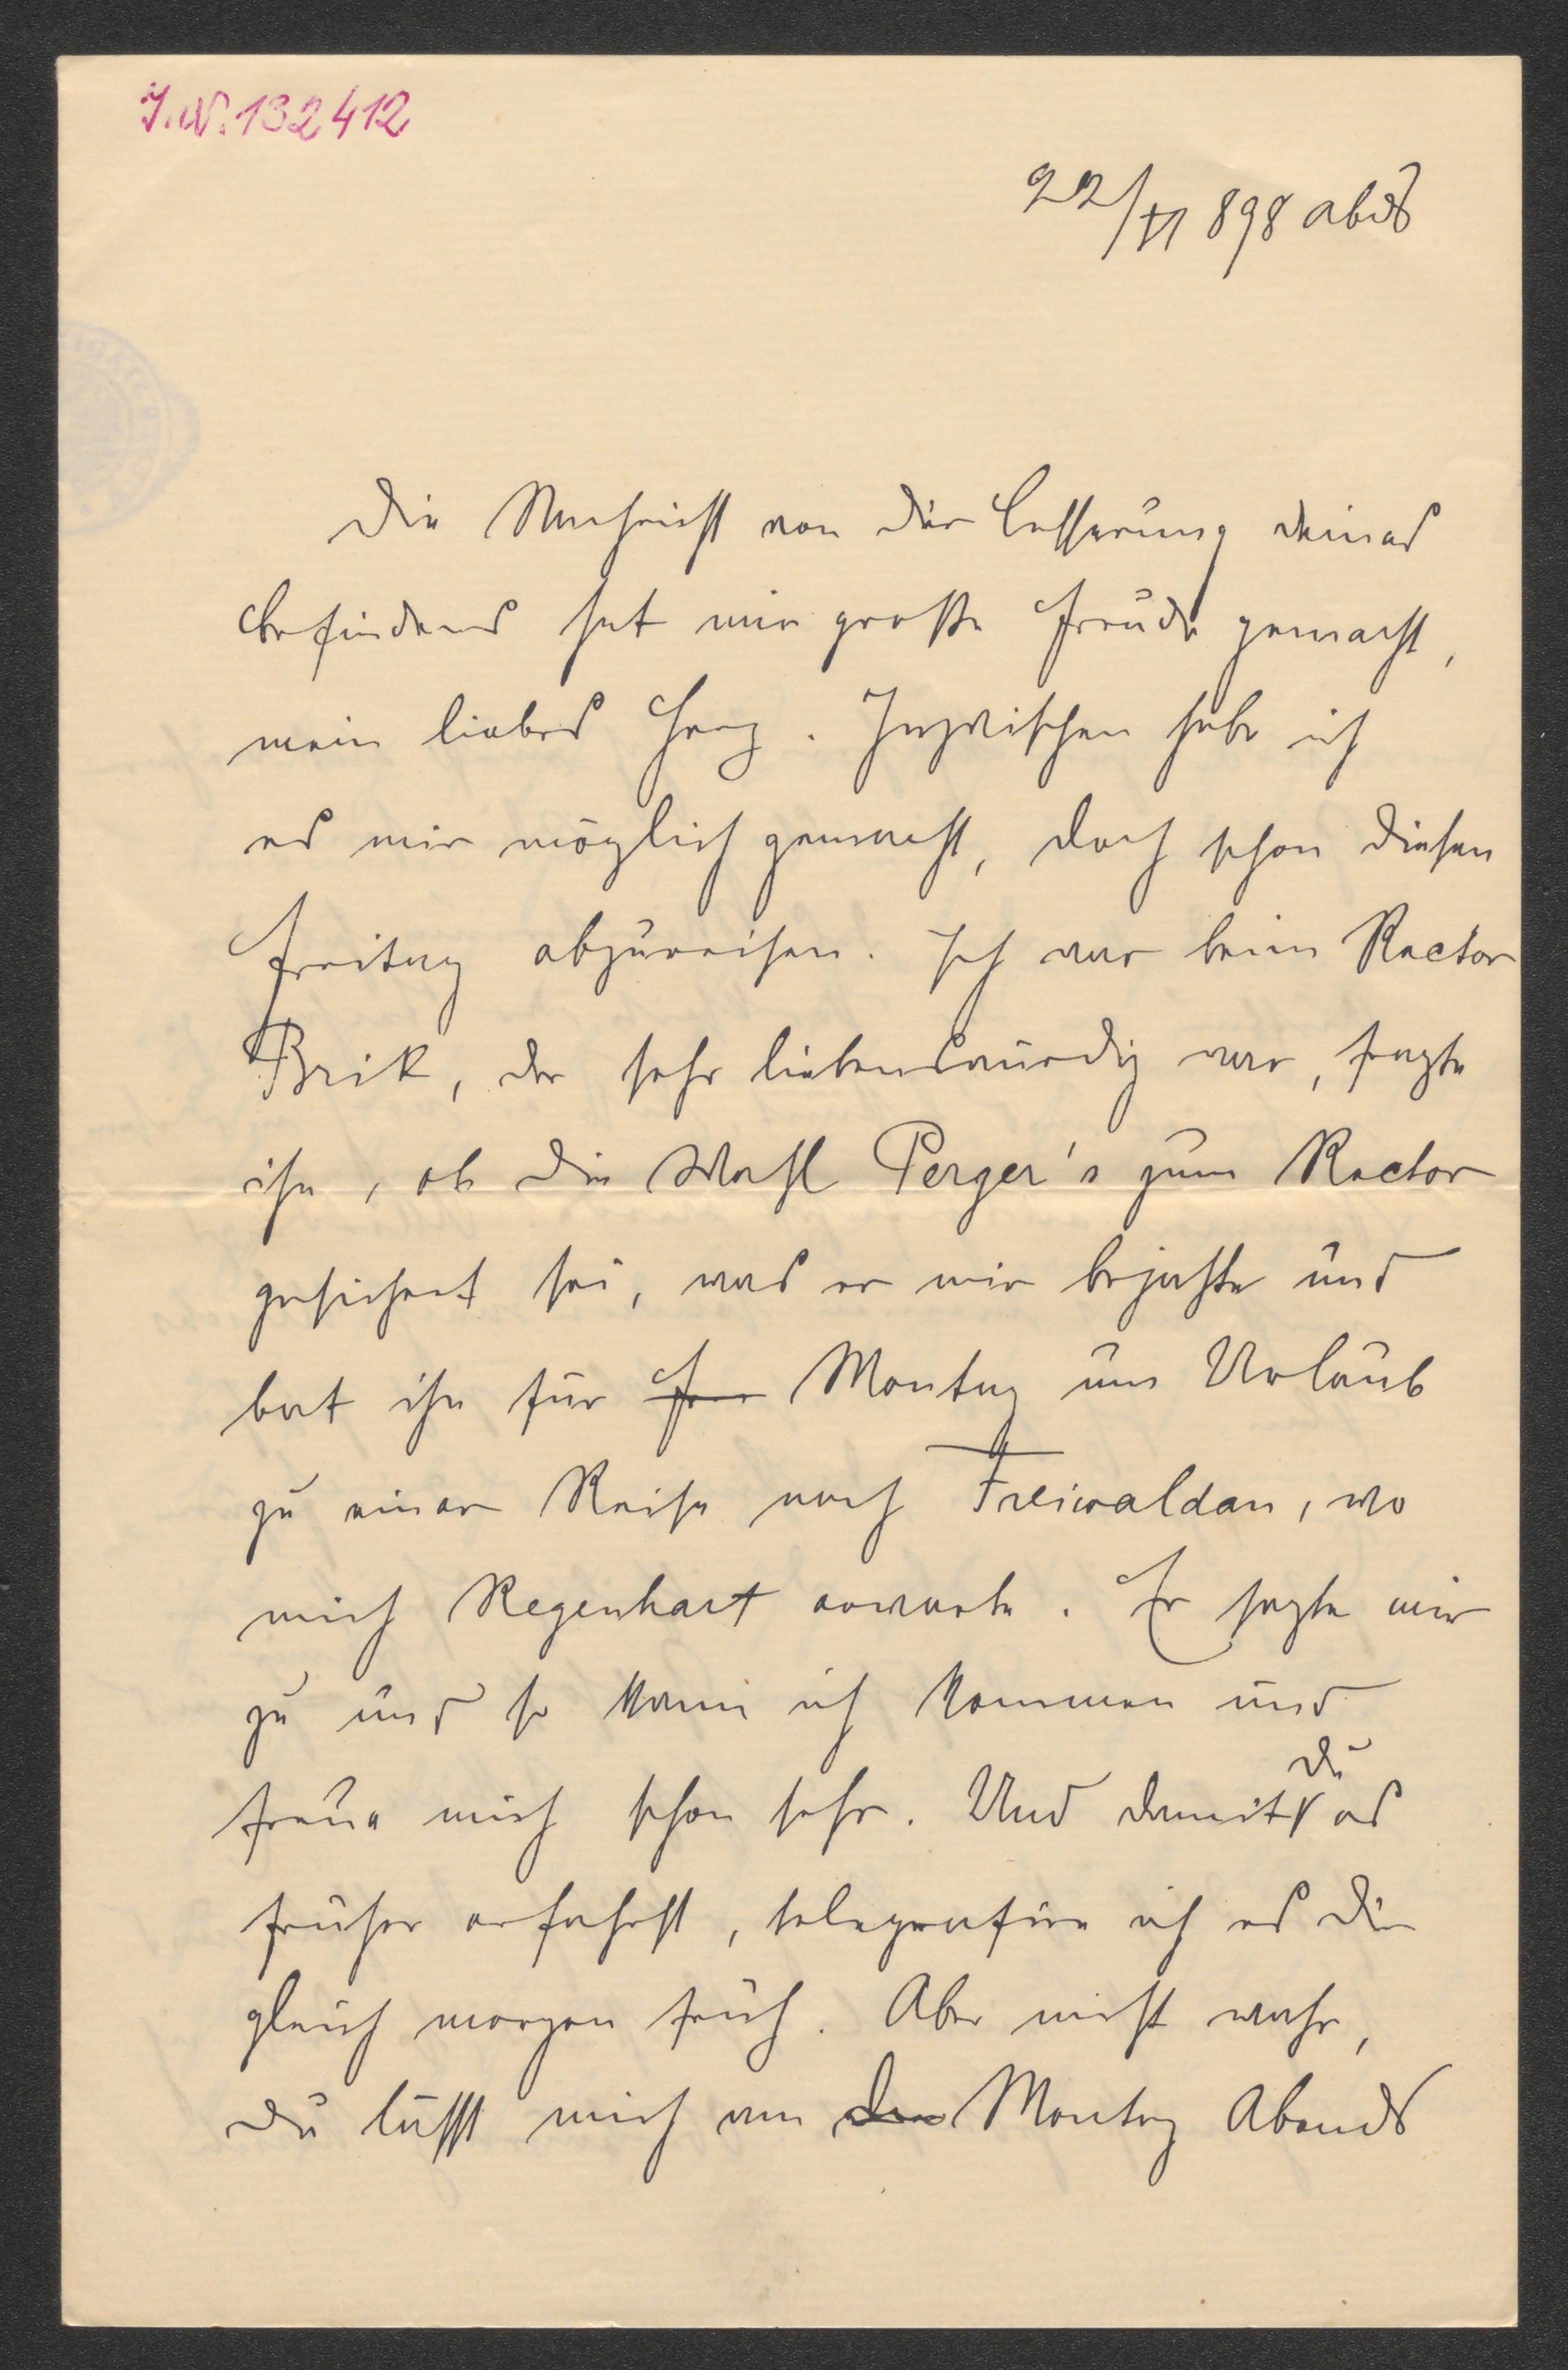 J.N. 132412
22/VI 898 abds
Die Nachricht von der Besserung deines
Befindens hat mir große Freude gemacht,
mein liebes Herz. Inzwischen habe ich
es mir möglich gemacht, doch schon diesen
Freitag abzureisen. Ich war beim Rector
Brik, der sehr liebenswürdig war, fragte
ihn, ob die Wahl Perger's zum Rector
gesichert sei, was er mir bejahte und
bat ihn für Montag um Urlaub
zu einer Reise nach Freiwaldau, wo
mich Regenhart erwarte. Er sagte mir
zu und so kann ich kommen und
freue mich schon sehr. Und damit du es
früher erfahrst, telegrafire ich es dir
gleich morgen früh. Aber nicht wahr,
du läßt mich am den Montag Abends